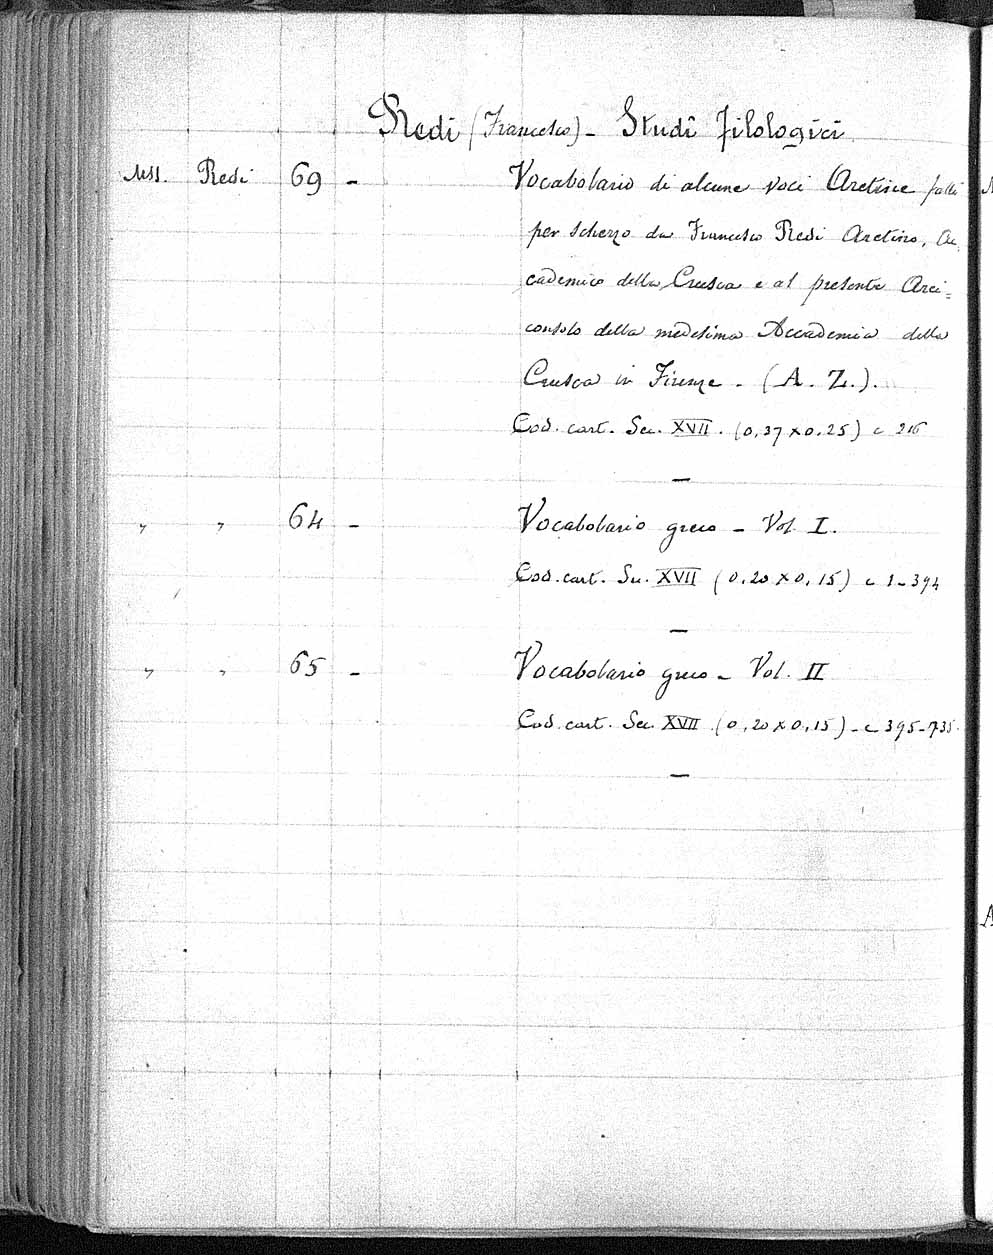 Redi (Francesco) - Studi filologici
Mss. Redi 69 - Vocabolario di alcune voci Aretine fatto
per scherzo da Francesco Redi Aretino, Ac
cademico della Crusca e al presente Arci=
consolo della medesima Accademia della
Crusca in Firenze - (A. Z.).
Cod. cart. Sec. XVII. (0,37 x 0,25) c 216
—
" " 64 - Vocabolario greco - Vol. I.
Cod. cart. Sec. XVII (0,20 x 0,15) c 1-394
—
" " 65 - Vocabolario greco - Vol. II
Cod. cart. Sec. XVII (0,20 x 0,15) - c 395-735.
—